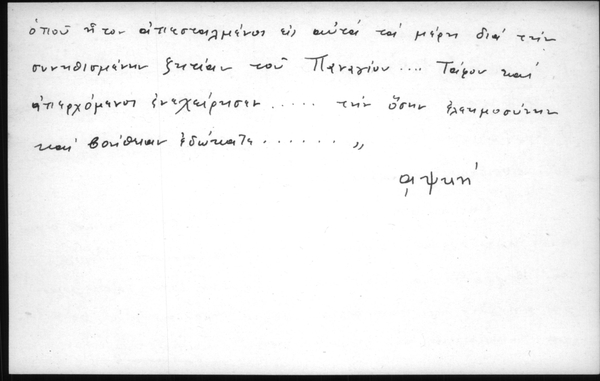 ὁποῦ ἦτον ἀπεσταλμένοι εἰς αὐτά τά μέρη διά τήν
συνηθισμένην ζητείαν τοῦ Παναγίου .... Τάφου καί
ἀπερχόμενοι ἐνεχείρησεν ..... τήν ὅσην ἐλεημοσύνην
καί βοήθειαν ἐδώκατε ...... „
αψκη'